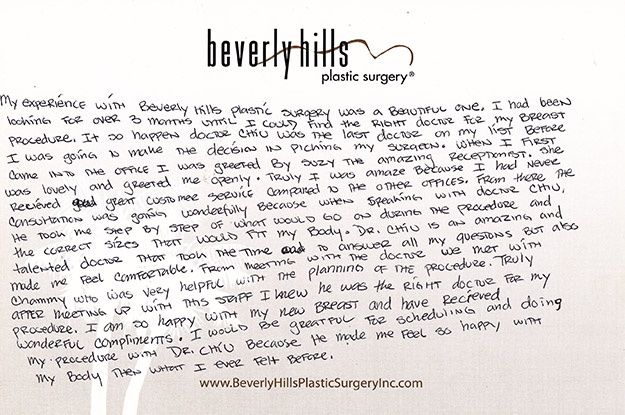 beverly hills
plastic surgery®
My experience with Beverly Hills plastic surgery was a beautiful one. I had been
looking for over 3 months until I could find the right doctor for my breast
procedure. It so happen doctor Chiu was the last doctor on my list before
I was going to make the decision in picking my surgeon. When I first
came into the office I was greeted by Suzy the amazing receptionist. She
was lovely and greeted me openly. Truly I was amaze because I had never
recieved great customer service compared to the other offices. From there the
consultation was going wonderfully because when speaking with doctor Chiu,
he took me step by step of what would go on during the procedure and
the correct sizes that would fit my body. Dr. Chiu is an amazing and
talented doctor that took the time to answer all my questions but also
made me feel comfortable. From meeting with the doctor we met with
Chammy who was very helpful with the planning of the procedure. Truly
after meeting up with this staff I knew he was the right doctor for my
procedure. I am so happy with my new breast and have recieved
wonderful compliments. I would be greatful for scheduling and doing
my procedure with Dr. Chiu because he made me feel so happy with
my body then what I ever felt before.
www.BeverlyHillsPlasticSurgeryInc.com